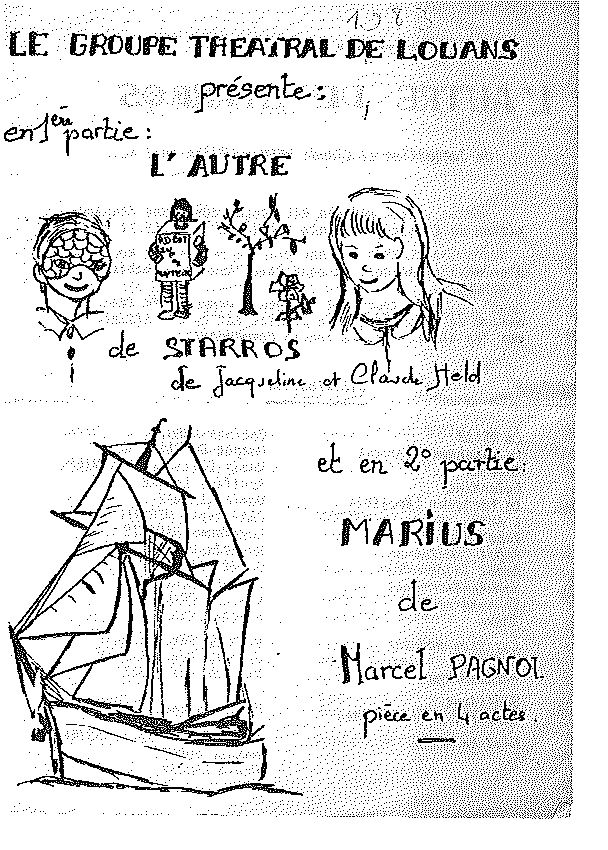 LE GROUPE THEATRAL DE LOUANS
présente :
en 1ère partie :
L' AUTRE
de STARROS
de Jacqueline et Claude Held
et en 2° partie :
MARIUS
de
Marcel PAGNOL
pièce en 4 actes.